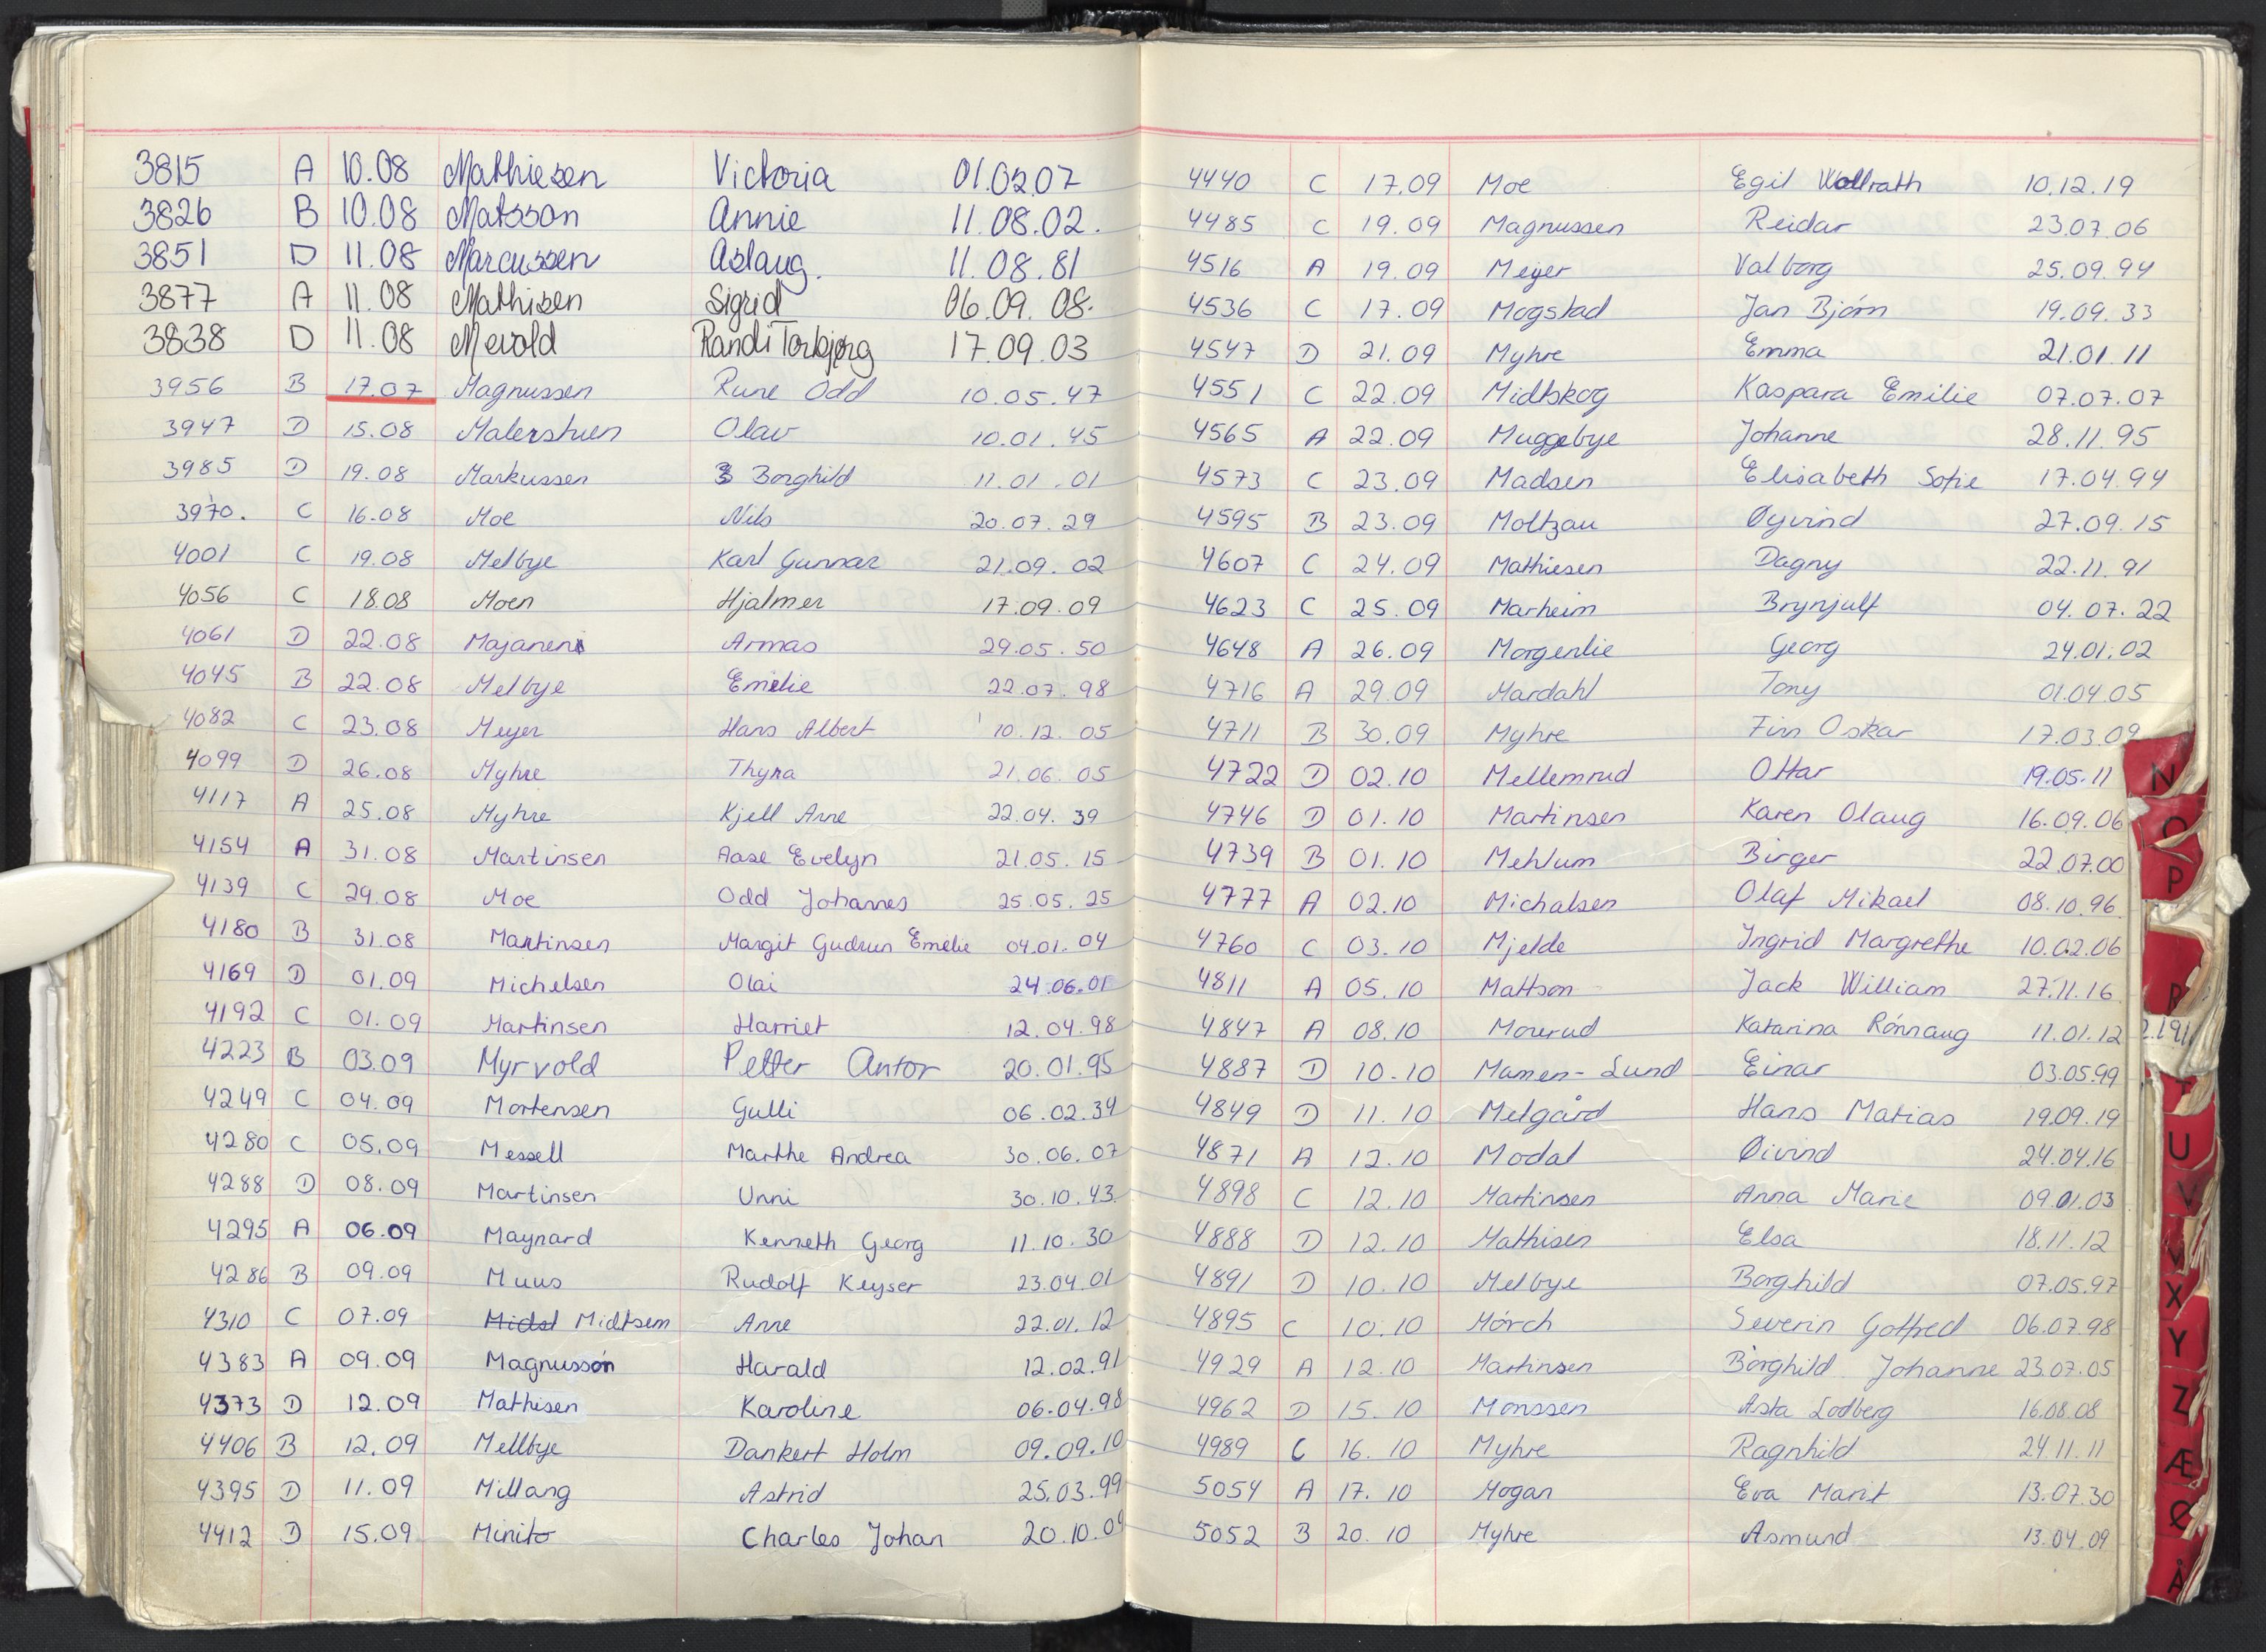 3815 A 10.08 Mathiesen Victoria 01.02.07
3826 B 10.08 Matsson Annie 11.08.02.
3851 D 11.08 Marcussen Aslaug. 11.08.81
3877 A 11.08 Mathisen Sigrid 06.09.08.
3838 D 11.08 Mevold Randi Torbjørg 17.09.03
3956 B 17.07 Magnussen Rune Odd 10.05.47
3947 D 15.08 Malerstuen Olav 10.01.45
3985 D 19.08 Markussen Borghild 11.01.01
3970. C 16.08 Moe Nils 20.07.29
4001 C 19.08 Melbye Karl Gunnar 21.09.02
4056 C 18.08 Moen Hjalmer 17.09.09
4061 D 22.08 Majanen Armas 29.05.50
4045 B 22.08 Melbye Emilie 22.07.98
4082 C 23.08 Meyer Hans Albert 10.12.05
4099 D 26.08 Myhre Thyra 21.06.05
4117 A 25.08 Myhre Kjell Arne 22.04.39
4154 A 31.08 Martinsen Aase Evelyn 21.05.15
4139 C 29.08 Moe Odd Johannes 25.05.25
4180 B 31.08 Martinsen Margit Gudrun Emelie 04.01.04
4169 D 01.09 Michelsen Olai 24.06.01
4192 C 01.09 Martinsen Harriet 12.04.98
4223 B 03.09 Myrvold Petter Anton 20.01.95
4249 C 04.09 Mortensen Gulli 06.02.34
4280 C 05.09 Messell Marthe Andrea 30.06.07
4288 D 08.09 Martinsen Unni 30.10.43.
4295 A 06.09 Maynard Kenneth Georg 11.10.30
4286 B 09.09 Muus Rudolf Keyser 23.04.01
4310 C 07.09 Midst Midtsem Anne 22.01.12
4383 A 09.09 Magnusson Harald 12.02.91
4373 D 12.09 Mathisen Karoline 06.04.98
4406 B 12.09 Mellbye Dankert Holm 09.09.10
4395 D 11.09 Millang Astrid 25.03.99
4412 D 15.09 Minito Charles Johan 20.10.09
4440 C 17.09 Moe Egil Wollrath 10.12.19
4485 C 19.09 Magnussen Reidar 23.07.06
4516 A 19.09 Meyer Valborg 25.09.94
4536 C 17.09 Mogstad Jan Bjórn 19.09.33
4547 D 21.09 Myhre Emma 21.01.11
4551 C 22.09 Midtskog Kaspara Emilie 07.07.07
4565 A 22.09 Muggebye Johanne 28.11.95
4573 C 23.09 Madsen Elisabeth Sofie 17.04.94
4595 B 23.09 Moltzau Øyvind 27.09.15
4607 C 24.09 Mathiesen Dagny 22.11.91
4623 C 25.09 Marheim Brynjulf 04.07.22
4648 A 26.09 Morgenlie Georg 24.01.02
4716 A 29.09 Mardahl Tony 01.04.05
4711 B 30.09 Myhre Finn Oskar 17.03.09
4722 D 02.10 Mellemrud Ottar 19.05.11
4746 D 01.10 Martinsen Karen Olaug 16.09.06
4739 B 01.10 Mehlum Birger 22.07.00
4777 A 02.10 Michalsen Olaf Mikael 08.10.96
4760 C 03.10 Mjelde Ingrid Margrethe 10.02.06
4811 A 05.10 Mattson Jack William 27.11.16
4847 A 08.10 Mourud Katarina Rónnaug 11.01.12
4887 D 10.10 Mamen-Lund Einar 03.05.99
4849 D 11.10 Melgård Hans Matias 19.09.19
4871 A 12.10 Modal Øivind 24.04.16
4898 C 12.10 Martinsen Anna Marie 09.01.03
4888 D 12.10 Mathisen Elsa 18.11.12
4891 D 10.10 Melbye Borghild 07.05.97
4895 C 10.10 Mórch Severin Gotfred 06.07.98
4929 A 12.10 Martinsen Borghild Johanne 23.07.05
4962 D 15.10 Monssen Asta Lodberg 16.08.08
4989 C 16.10 Myhre Ragnhild 24.11.11
5054 A 17.10 Mogan Eva Marit 13.07.30
5052 B 20.10 Myhre Asmund 13.04.09
N
O
P
R
T
U
V
X
Y
Z
Æ
Ø
Å